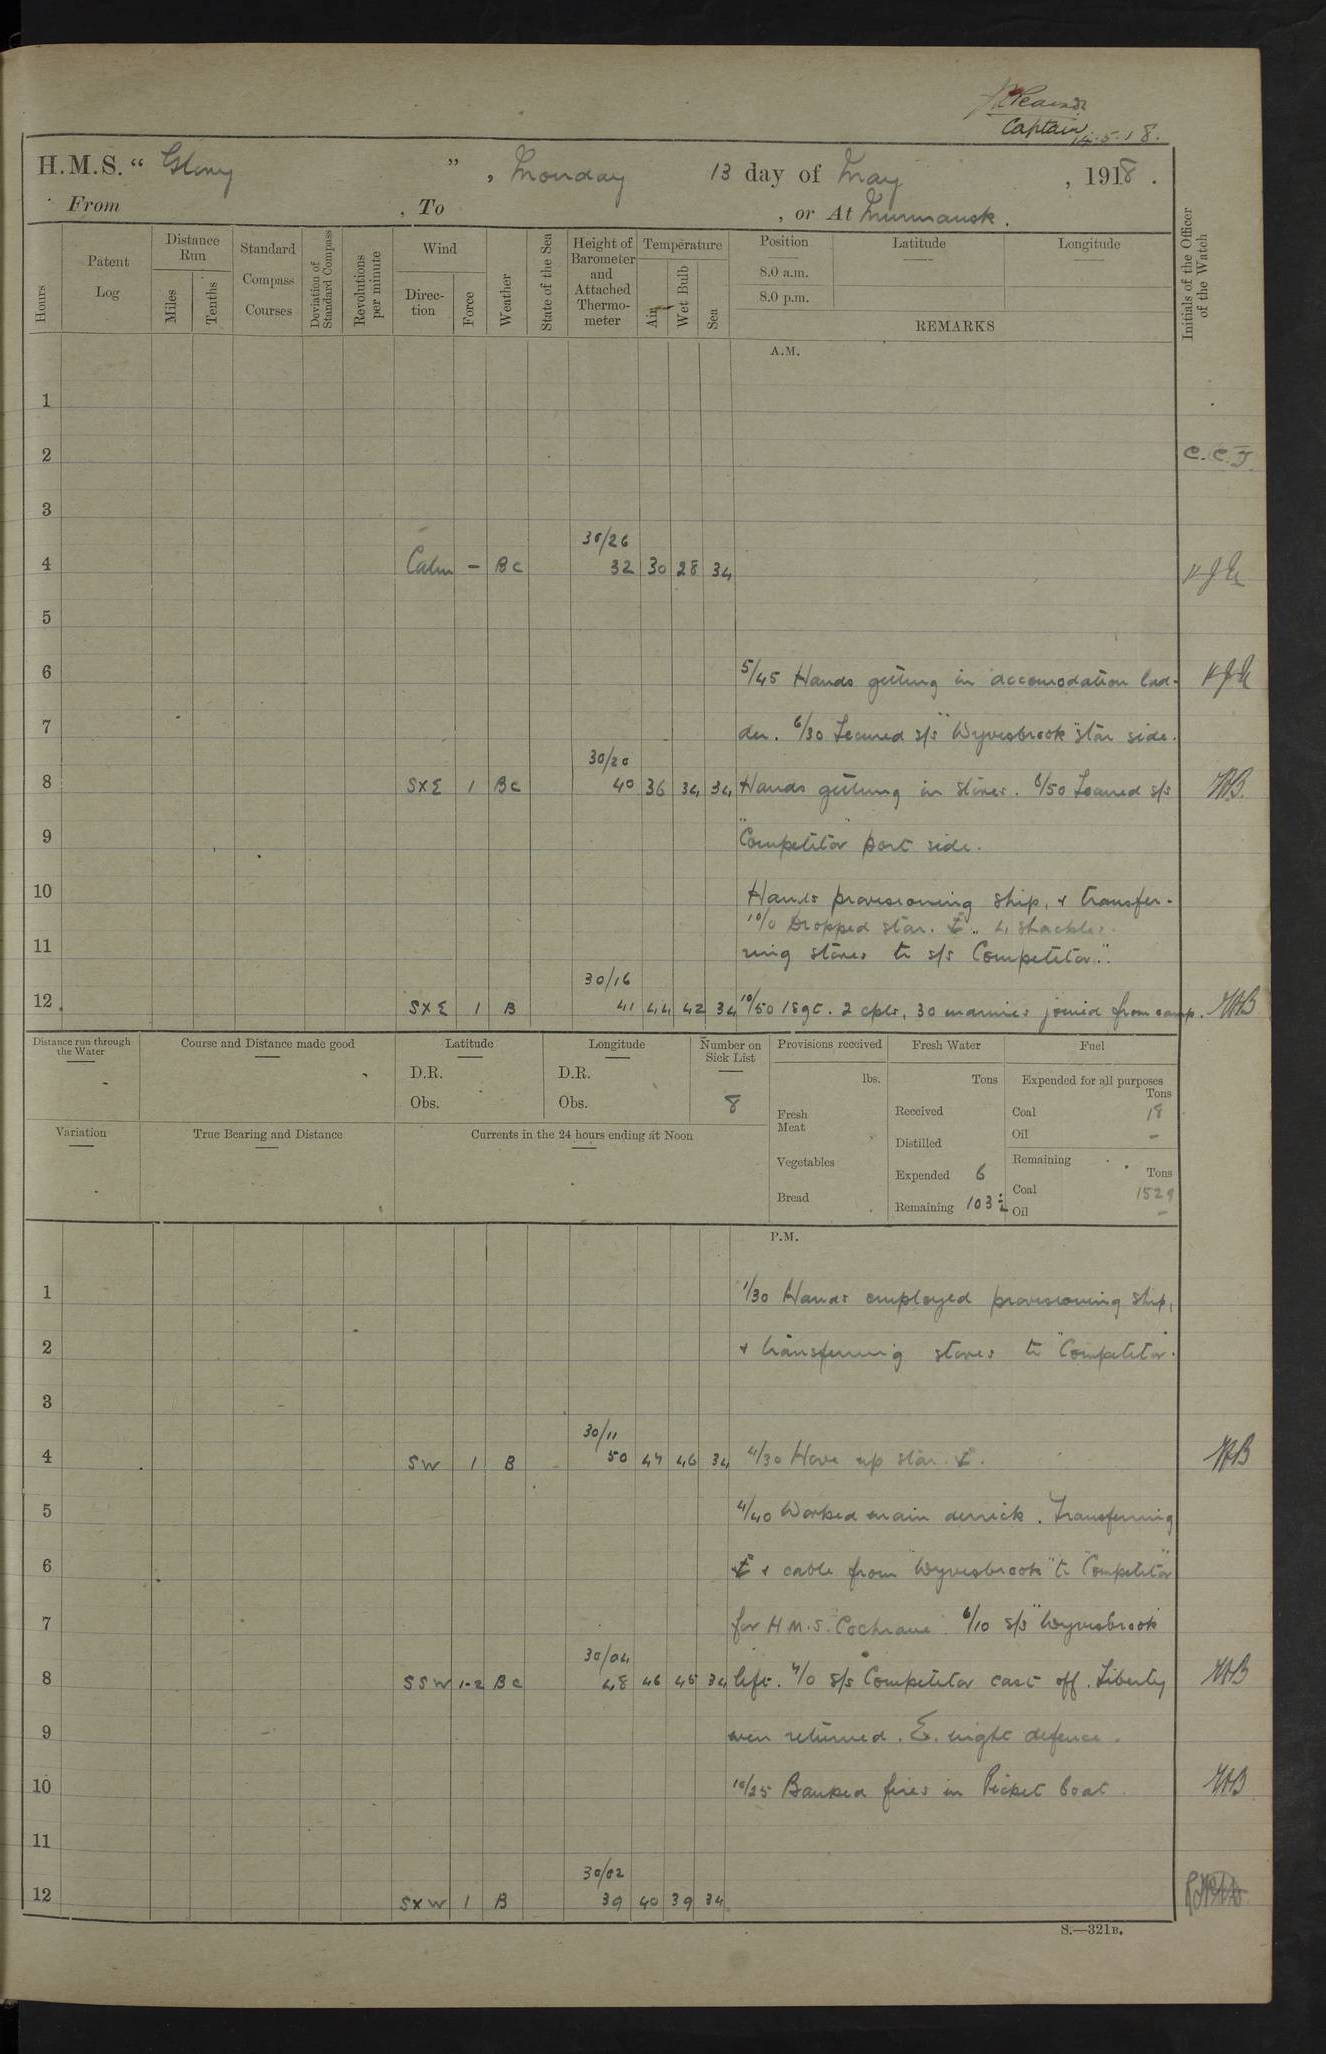 Captain 14.5.18.
H.M.S. " Glory " , Monday 13 day of May , 1918 .
From , To , or At Murmansk .
Hours
Patent Log
Distance Run
Miles
Tenths
Standard Compass Courses
Deviation of Standard Compass
Revolutions per minute
Wind
Direction
Force
Weather
State of the Sea
Height of Barometer and Attached Thermometer
Temperature
Air
Wet Bulb
Sea
Position
8.0 a.m.
8.0 p.m.
Latitude
Longitude
REMARKS
Initials of the Officer of the Watch
A.M.
1
2 C.C.J.
3
30/26
4 Calm – Bc 32 30 28 34
5
6 5/45 Hands getting in accomodation lad-
7 der. 6/30 Secured s/s "Wyvisbrook" star side.
30/20
8 SXE 1 Bc 40 36 34 34 Hands getting in stores. 8/50 Secured s/s
9 "Competitor" port side.
10 Hands provisioning ship, & transfer-
10/0 Dropped star. ⚓. 4 shackles.
11 ring stores to s/s "Competitor".
30/16
12 SXE 1 B 41 44 42 34 10/50 1 Sgt. 2 cpls, 30 marines joined from camp.
Distance run through the Water
Course and Distance made good
Latitude
D.R.
Obs.
Longitude
D.R.
Obs.
Number on Sick List
8
Provisions received
lbs.
Fresh Meat
Vegetables
Bread
Fresh Water
Tons
Received
Distilled
Expended 6
Remaining 103½
Fuel
Expended for all purposes
Tons
Coal 18
Oil –
Remaining
Tons
Coal 1529
Oil –
Variation
True Bearing and Distance
Currents in the 24 hours ending at Noon
P.M.
1 1/30 Hands employed provisioning ship,
2 & transferring stores to "Competitor".
3
30/11
4 SW 1 B 50 47 46 34 4/30 Hove up star. ⚓.
5 4/40 Worked main derrick. Transferring
6 ⚓ & cable from "Wyvisbrook" to "Competitor"
7 for H.M.S. "Cochrane". 6/10 s/s "Wyvisbrook"
30/04
8 SSW 1-2 Bc 48 46 45 34 left. 7/0 s/s Competitor cast off. Liberty
9 men returned. E. night defence.
10 10/25 Banked fires in Picket boat.
11
30/02
12 SXW 1 B 39 40 39 34
S.—321B.